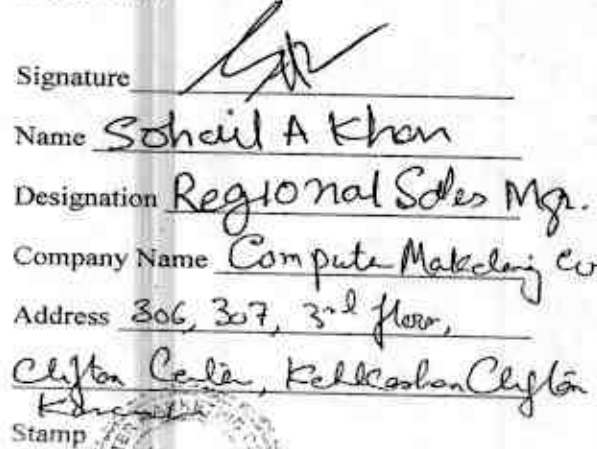 Signature
Name Sohail A Khan
Designation Regional Sales Mgr.
Company Name Computer Marketing Co
Address 306, 307, 3rd floor,
Clifton Center, Kehkashan Clifton
Karachi
Stamp